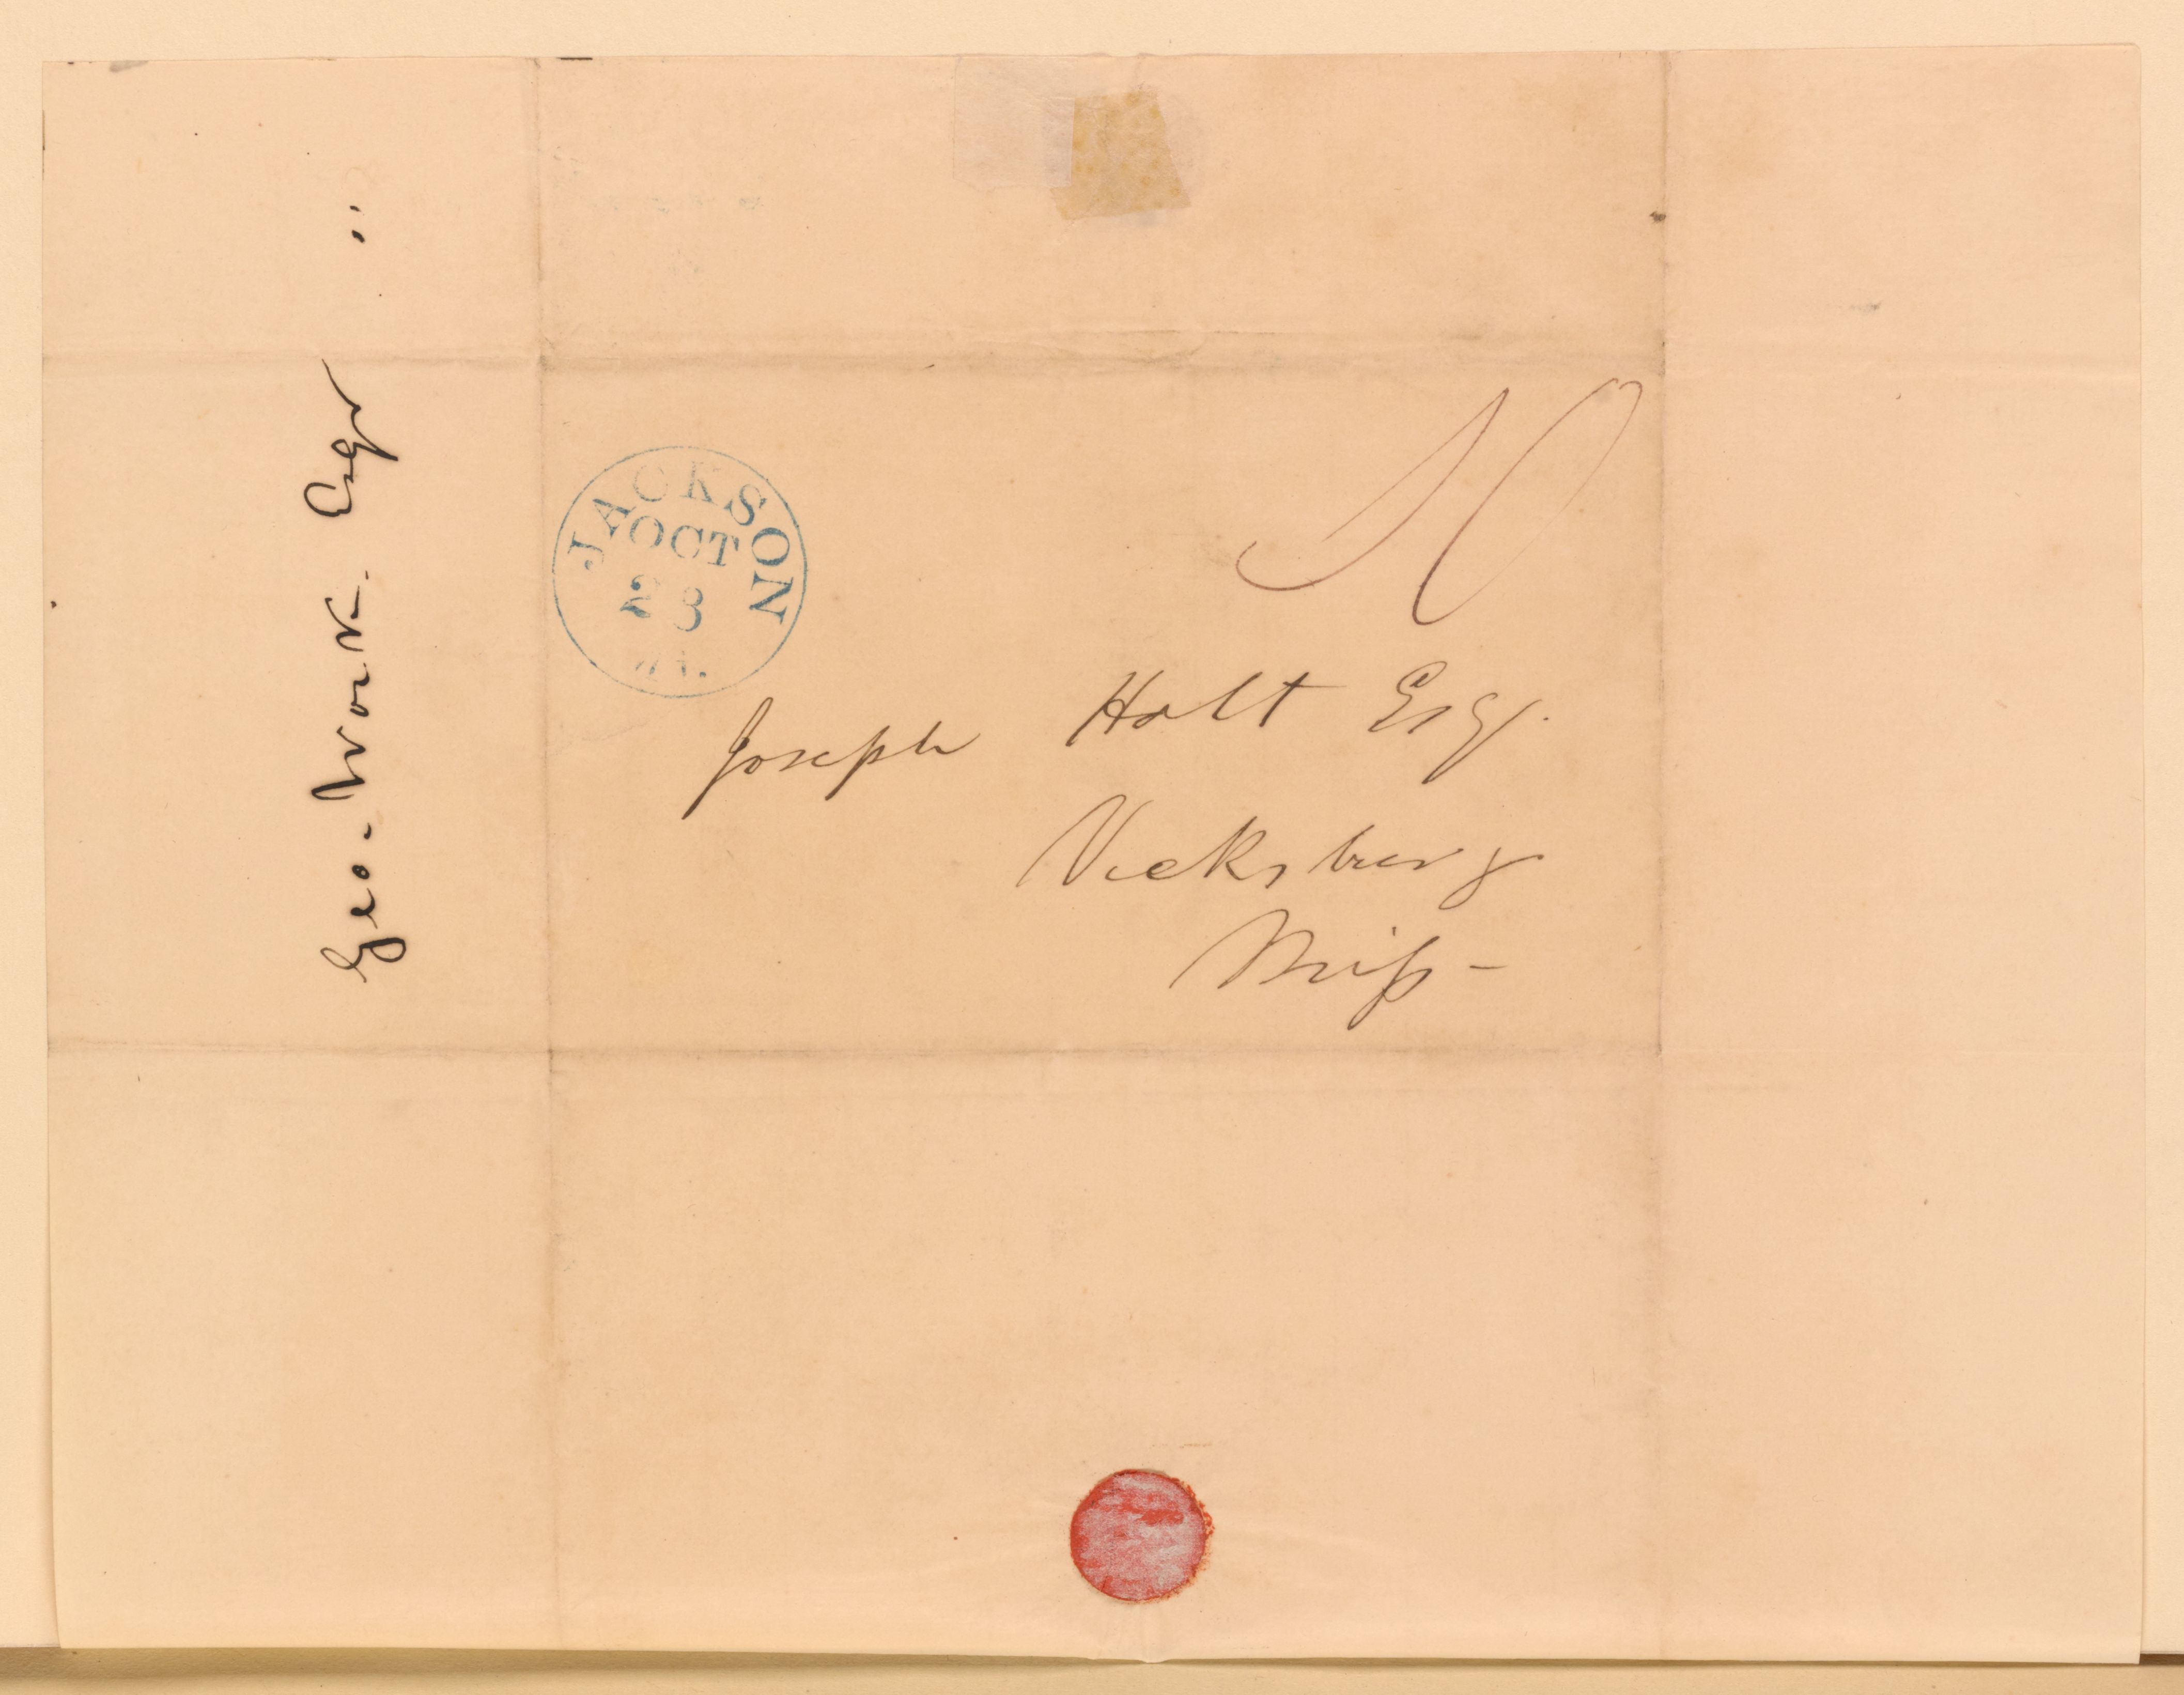 Geo. Work. Esqr
JACKSON
OCT
28
Mi.
10
Joseph Holt Esq.
Vicksburg
Miss-